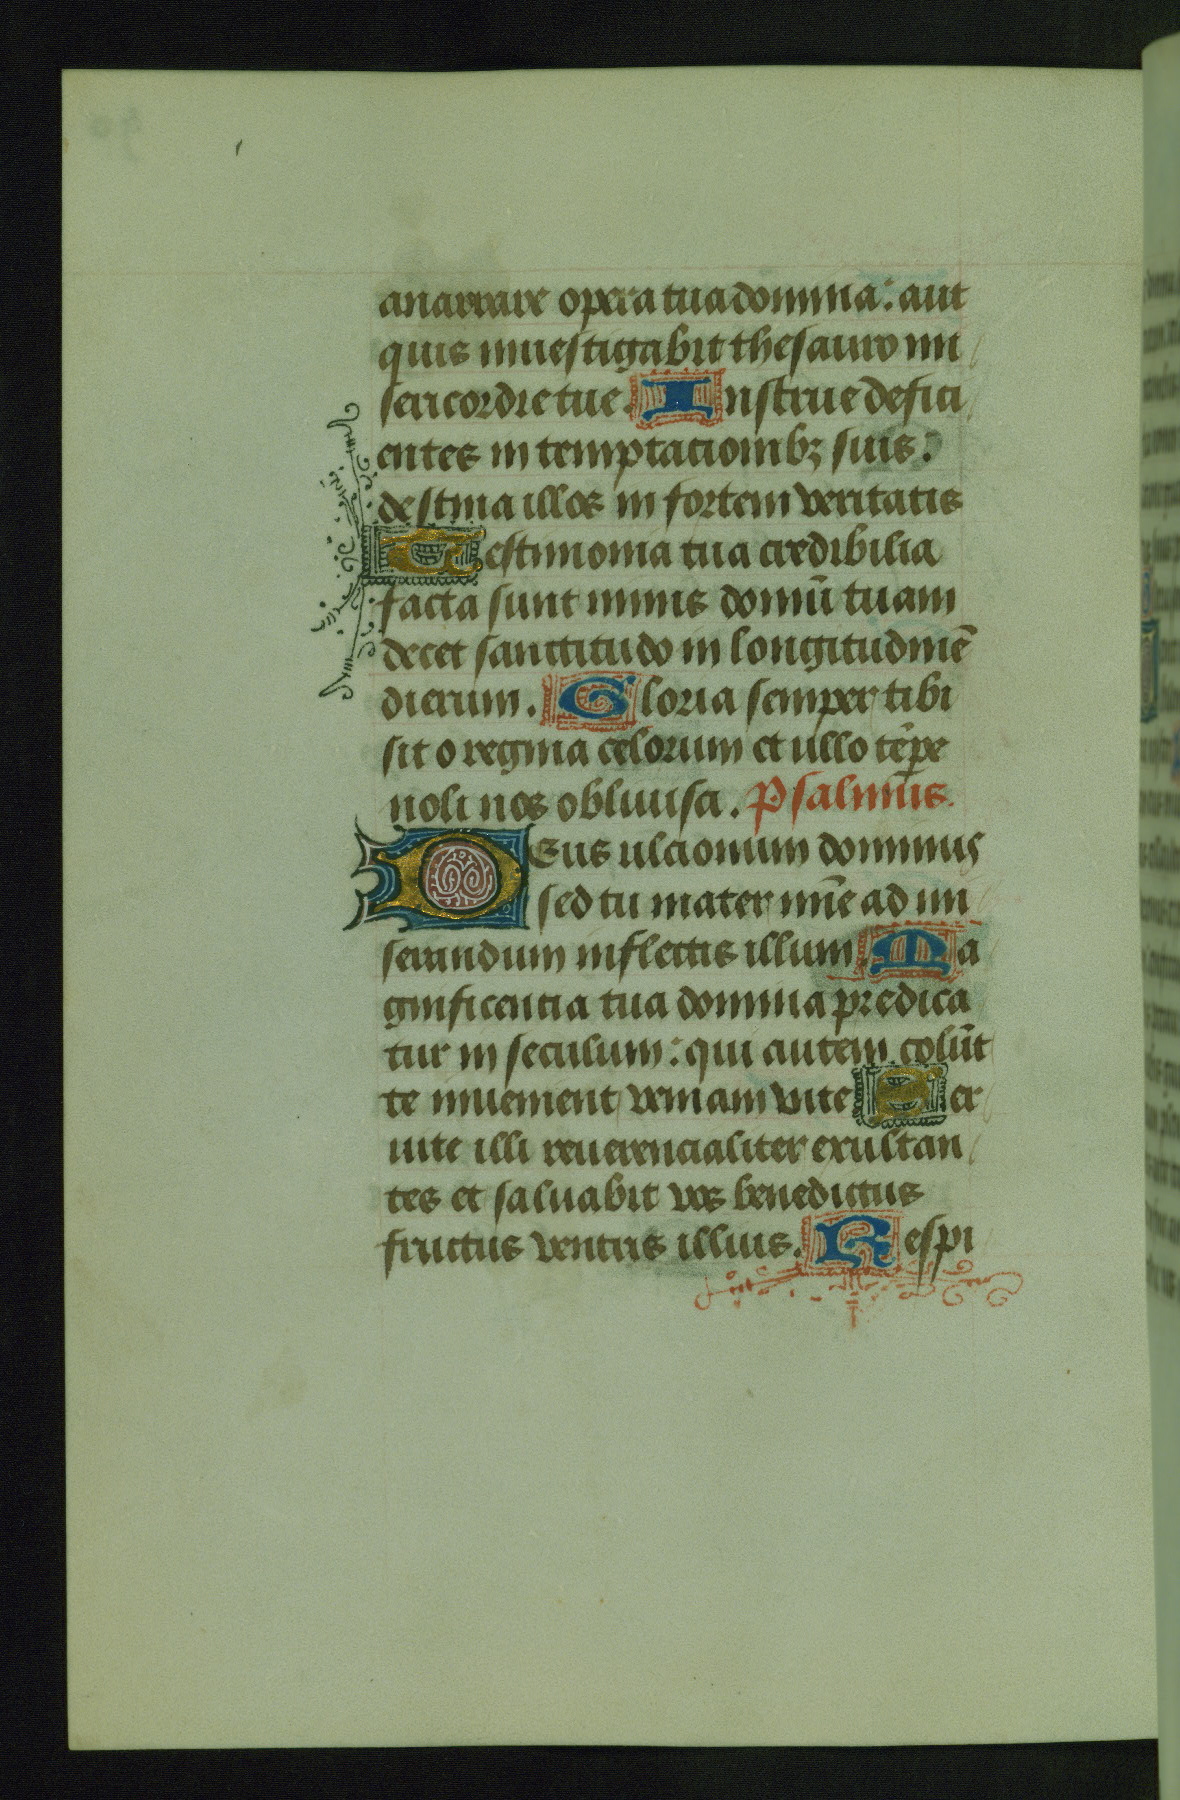 anarrare opera tua domina: aut
quis inuestigabit thesauro mi
sericordie tue. Instrue defici
entes in temptacionibꝫ suis:
destina illos in fortem veritatis
Testimonia tua credibilia
facta sunt nimis domū tuam
decet sanctitudo in longitudinē
dierum. Gloria semper tibi
sit o regina celorum et ullo tēpe
noli nos obliuisci. Psalmus.
Deus ulcionum dominus
sed tu mater mīe ad mi
serandum inflectis illum. Ma
gnificentia tua domina predica
tur in seculum: qui autem colūt
te inuenient veniam vite Ser
uite illi reuerencialiter exultan
tes et saluabit vos benedictus
fructus ventris illius. Respi